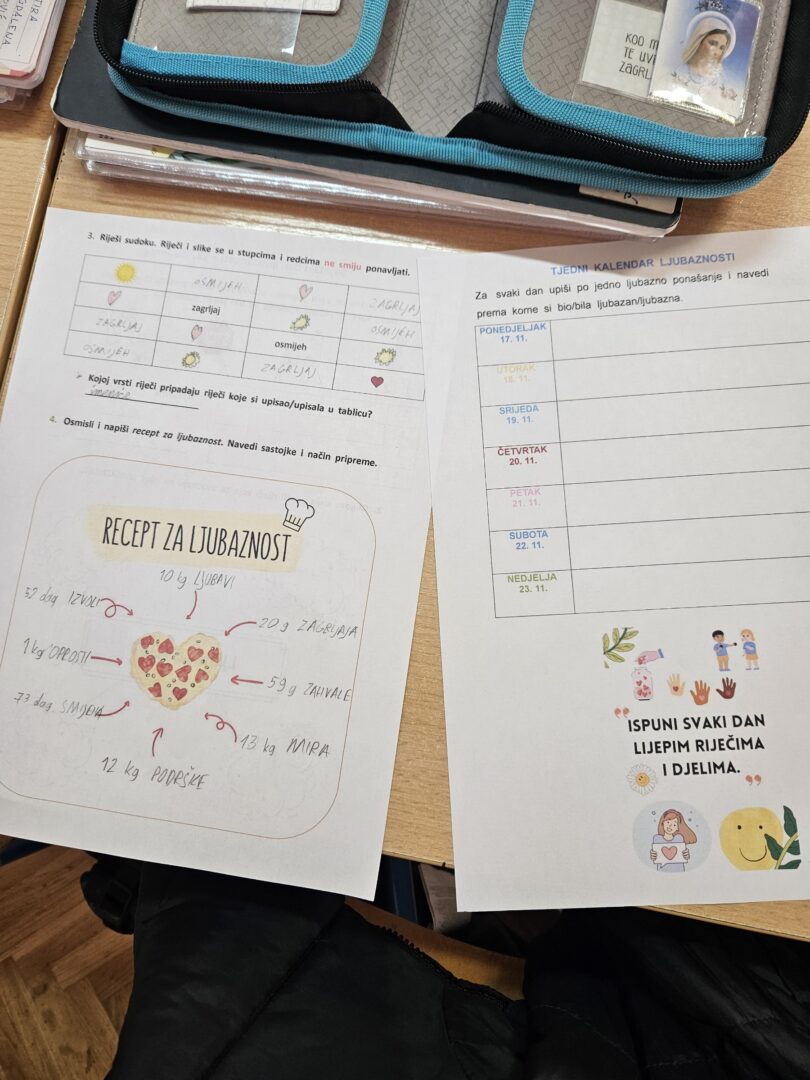 TIRA
GDALENA
KOD M
TE UVI
ZAGRL
3. Riješi sudoku. Riječi i slike se u stupcima i redcima ne smiju ponavljati.
OSMIJEH ZAGRLJAJ
zagrljaj
ZAGRLJAJ OSMIJEH
osmijeh
OSMIJEH ZAGRLJAJ
➢ Kojoj vrsti riječi pripadaju riječi koje si upisao/upisala u tablicu?
imenice
4. Osmisli i napiši recept za ljubaznost. Navedi sastojke i način pripreme.
RECEPT ZA LJUBAZNOST
10 kg LJUBAVI
52 dag IZVOLI
20 g ZAGRLJAJA
1 kg OPROSTI
59 g ZAHVALE
73 dag SMIJEHA
13 kg MIRA
12 kg PODRŠKE
TJEDNI KALENDAR LJUBAZNOSTI
Za svaki dan upiši po jedno ljubazno ponašanje i navedi
prema kome si bio/bila ljubazan/ljubazna.
PONEDJELJAK
17. 11.
UTORAK
18. 11.
SRIJEDA
19. 11.
ČETVRTAK
20. 11.
PETAK
21. 11.
SUBOTA
22. 11.
NEDJELJA
23. 11.
"ISPUNI SVAKI DAN
LIJEPIM RIJEČIMA
I DJELIMA."